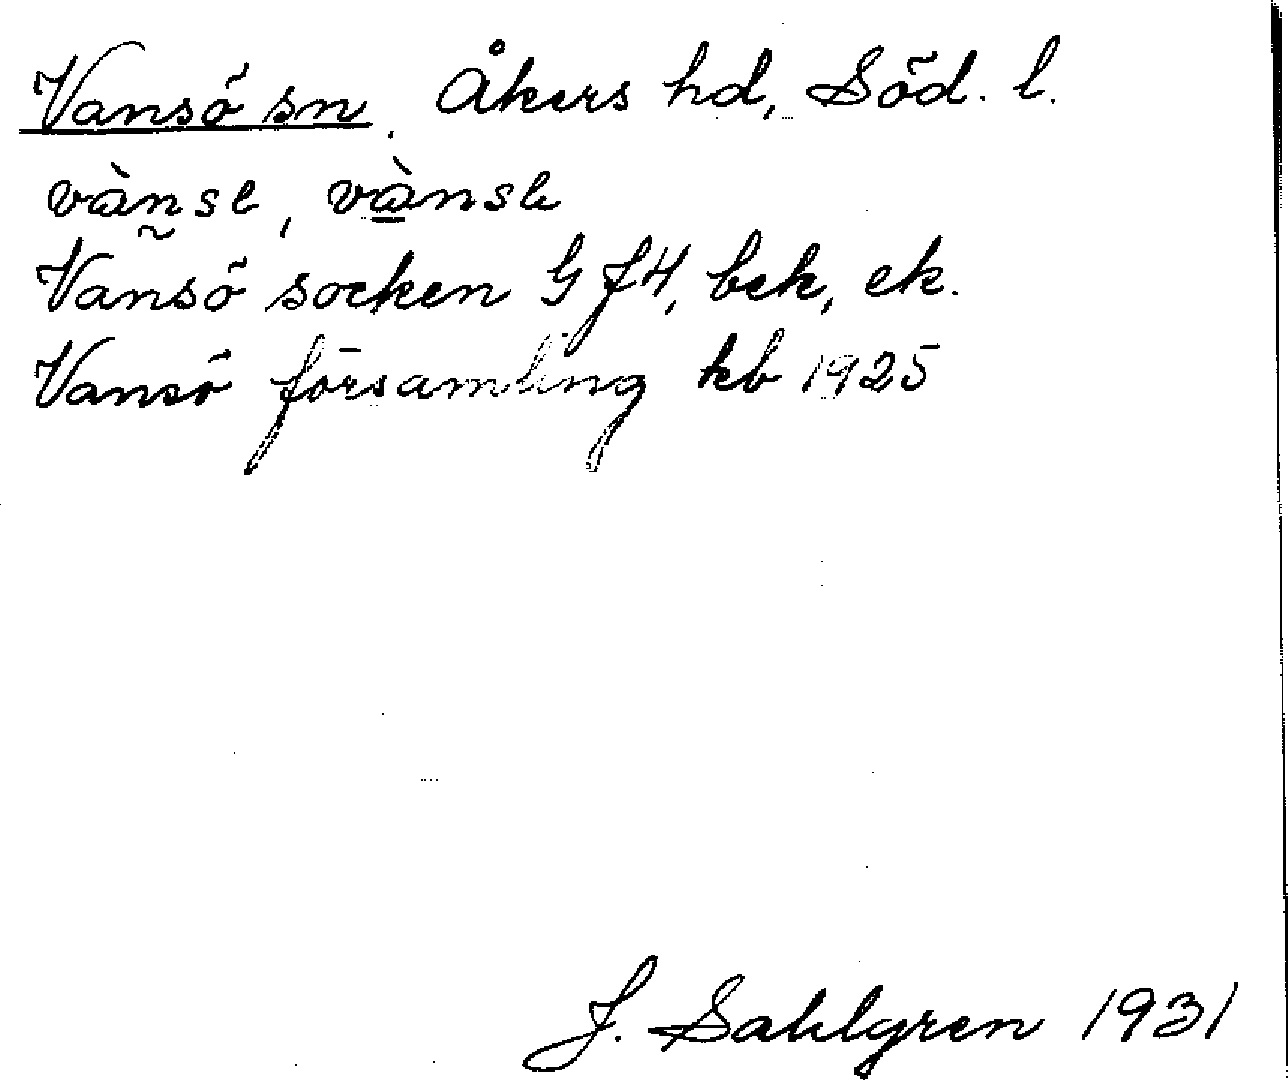 Vansö sn. Åkers hd, Söd. l.
vànse, vànse
Vansö socken GJ4, bek, ek.
Vansö församling kb 1925
J. Sahlgren 1931